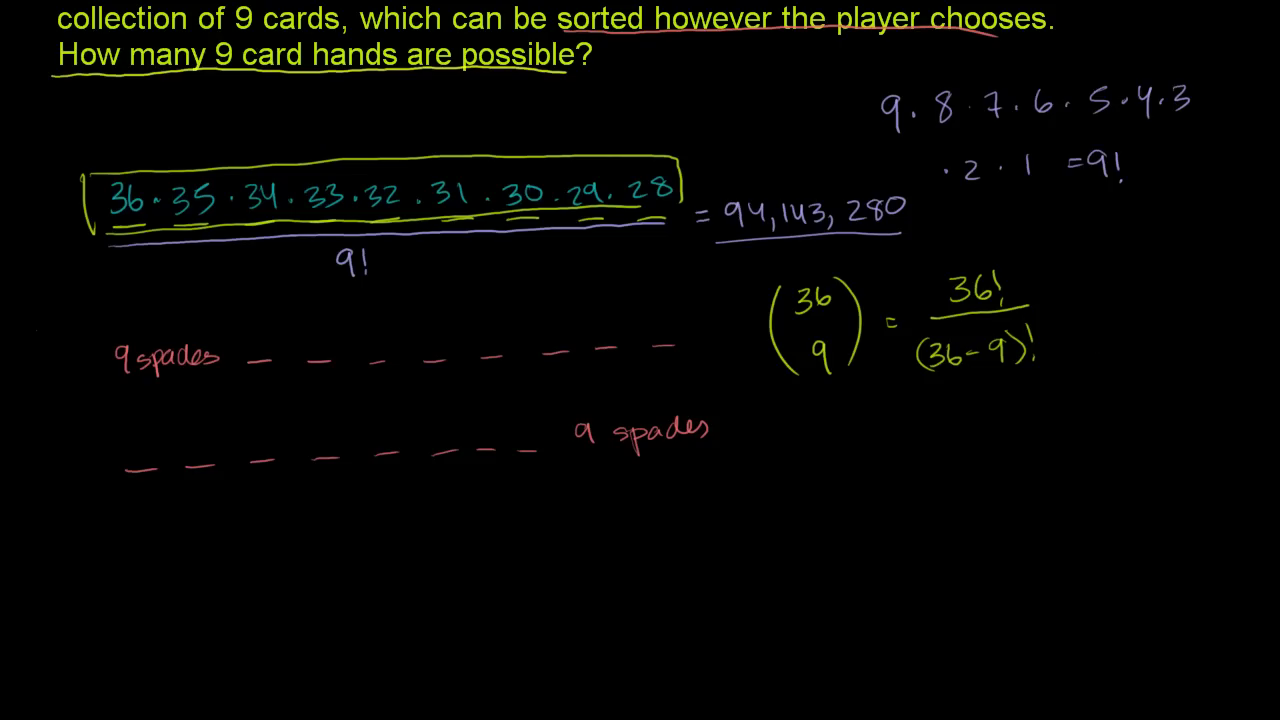 collection of 9 cards, which can be sorted however the player chooses.
How many 9 card hands are possible?
9 · 8 · 7 · 6 · 5 · 4 · 3
· 2 · 1 = 9!
36 · 35 · 34 · 33 · 32 · 31 · 30 · 29 · 28
= 94,143,280
9!
(36 9) = 36! / (36 - 9)!
9 spades
9 spades